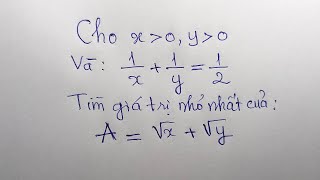 Cho x>0, y>0
Và: 1/x + 1/y = 1/2
Tìm giá trị nhỏ nhất của:
A = √x + √y